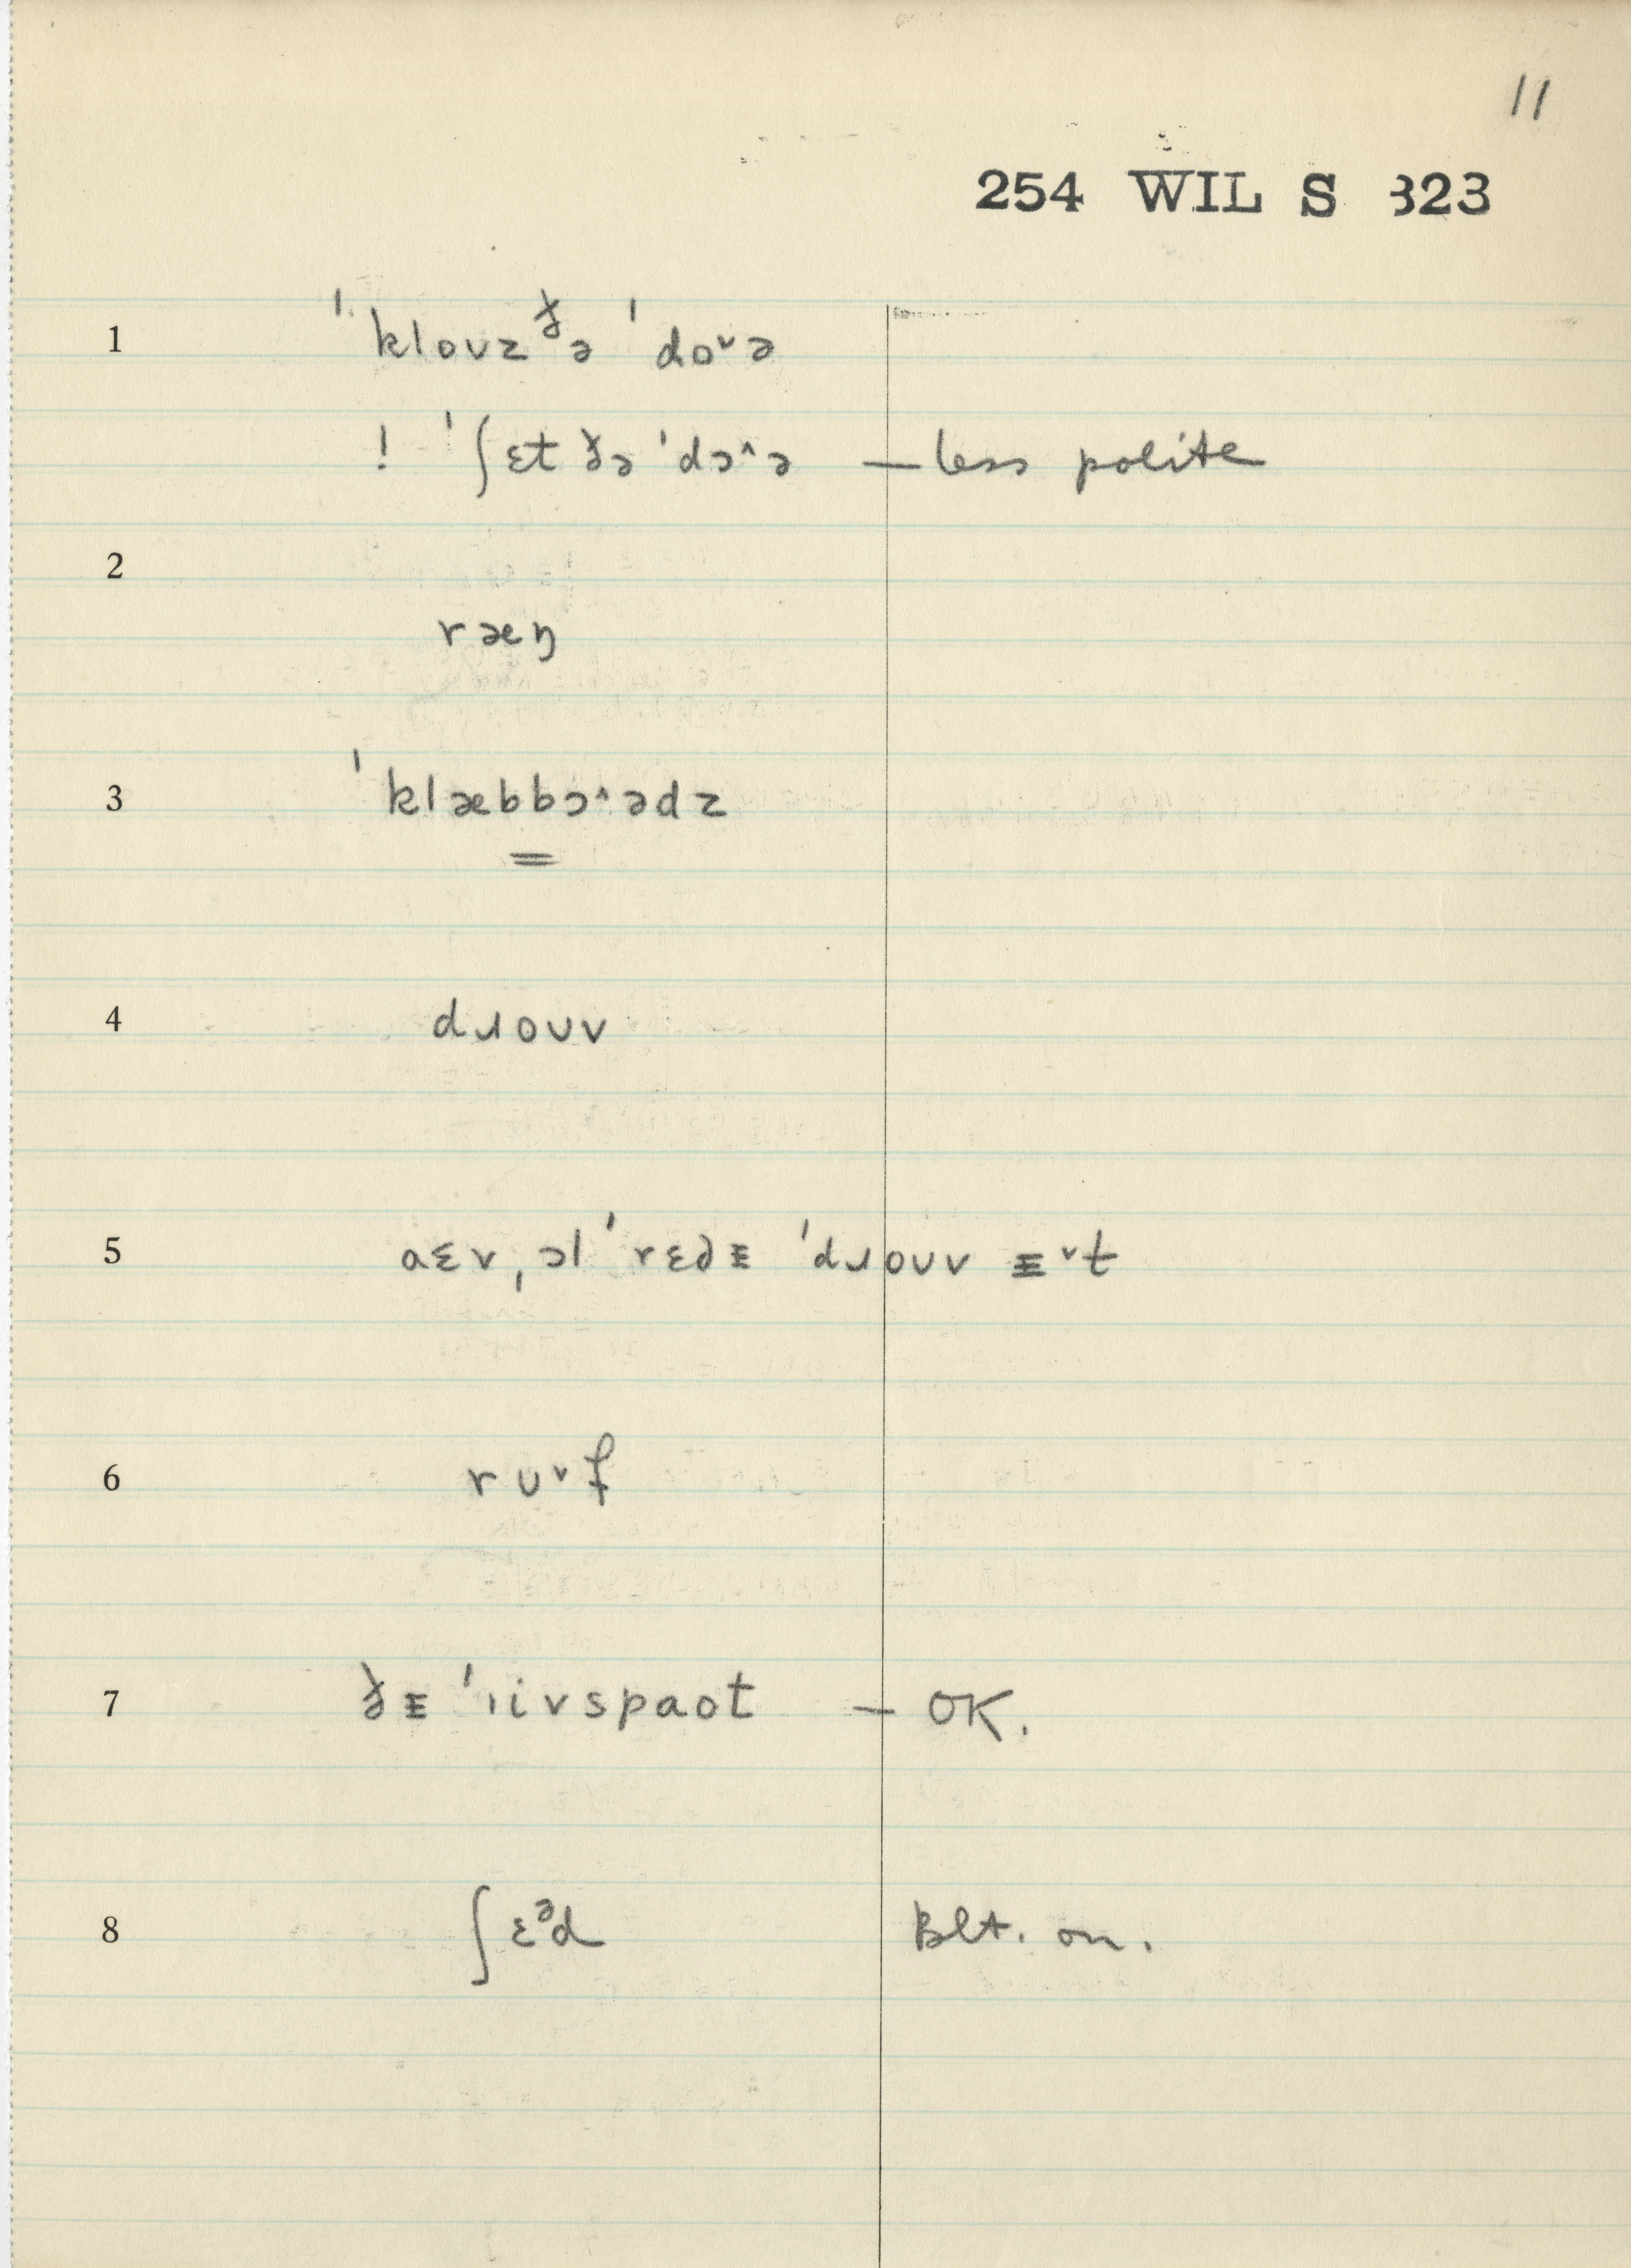 11
254 WIL S 323
1 ˈklouz ð̵ə ˈdo˅ə
! ˈʃɛt ð̵ə ˈdɔ˄ə — less polite
2
ræŋ
3 ˈklæbbɔ˄ədz
4 dɹouv
5 aɛv ˌɔl ˈrɛdᵻ ˈdɹouv ᵻ˅t
6 rʊ˅f
7 ðᵻ ˈɹivspaot — OK.
8 ʃɛᵊd Blt. on.